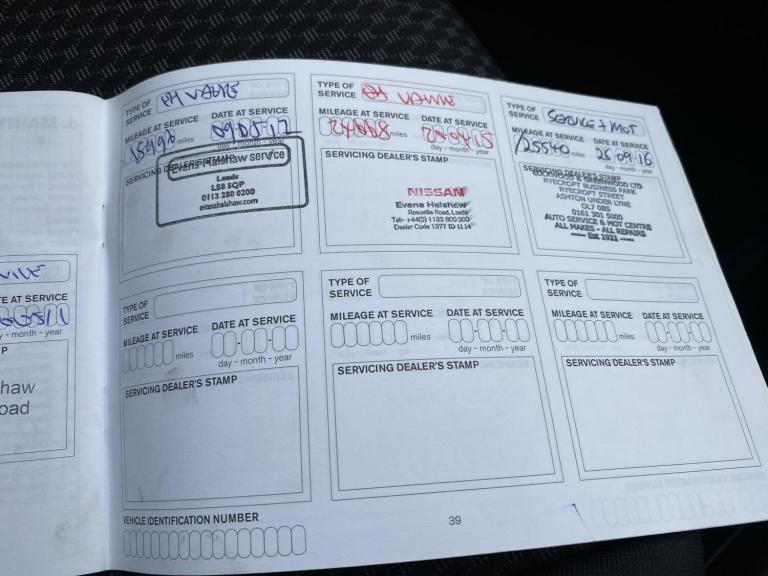 TE AT SERVICE
- month - year
haw
oad
TYPE OF
SERVICE
EH VALUE
MILEAGE AT SERVICE
DATE AT SERVICE
miles
day - month - year
SERVICING DEALER'S STAMP
Evans Halshaw service
Leeds
LS8 5QP
0113 280 0200
evanshalshaw.com
TYPE OF
SERVICE
EH VALUE
MILEAGE AT SERVICE
DATE AT SERVICE
miles
day - month - year
SERVICING DEALER'S STAMP
NISSAN
Evans Halshaw
Roseville Road, Leeds
Tel:- +44(0) 1132 800 200
Dealer Code 1377 ID 11.14
TYPE OF
SERVICE
SERVICE + MOT
MILEAGE AT SERVICE
DATE AT SERVICE
25540 miles
28 09 16
day - month - year
SERVICING DEALER'S STAMP
& GREENWOOD LTD
RYECROFT BUSINESS PARK
RYECROFT STREET
ASHTON UNDER LYNE
OL7 0BS
0161 301 5000
AUTO SERVICE & MOT CENTRE
ALL MAKES - ALL REPAIRS
Est 1931
TYPE OF
SERVICE
MILEAGE AT SERVICE
DATE AT SERVICE
miles
day - month - year
SERVICING DEALER'S STAMP
TYPE OF
SERVICE
MILEAGE AT SERVICE
DATE AT SERVICE
miles
day - month - year
SERVICING DEALER'S STAMP
TYPE OF
SERVICE
MILEAGE AT SERVICE
DATE AT SERVICE
miles
day - month - year
SERVICING DEALER'S STAMP
VEHICLE IDENTIFICATION NUMBER
39